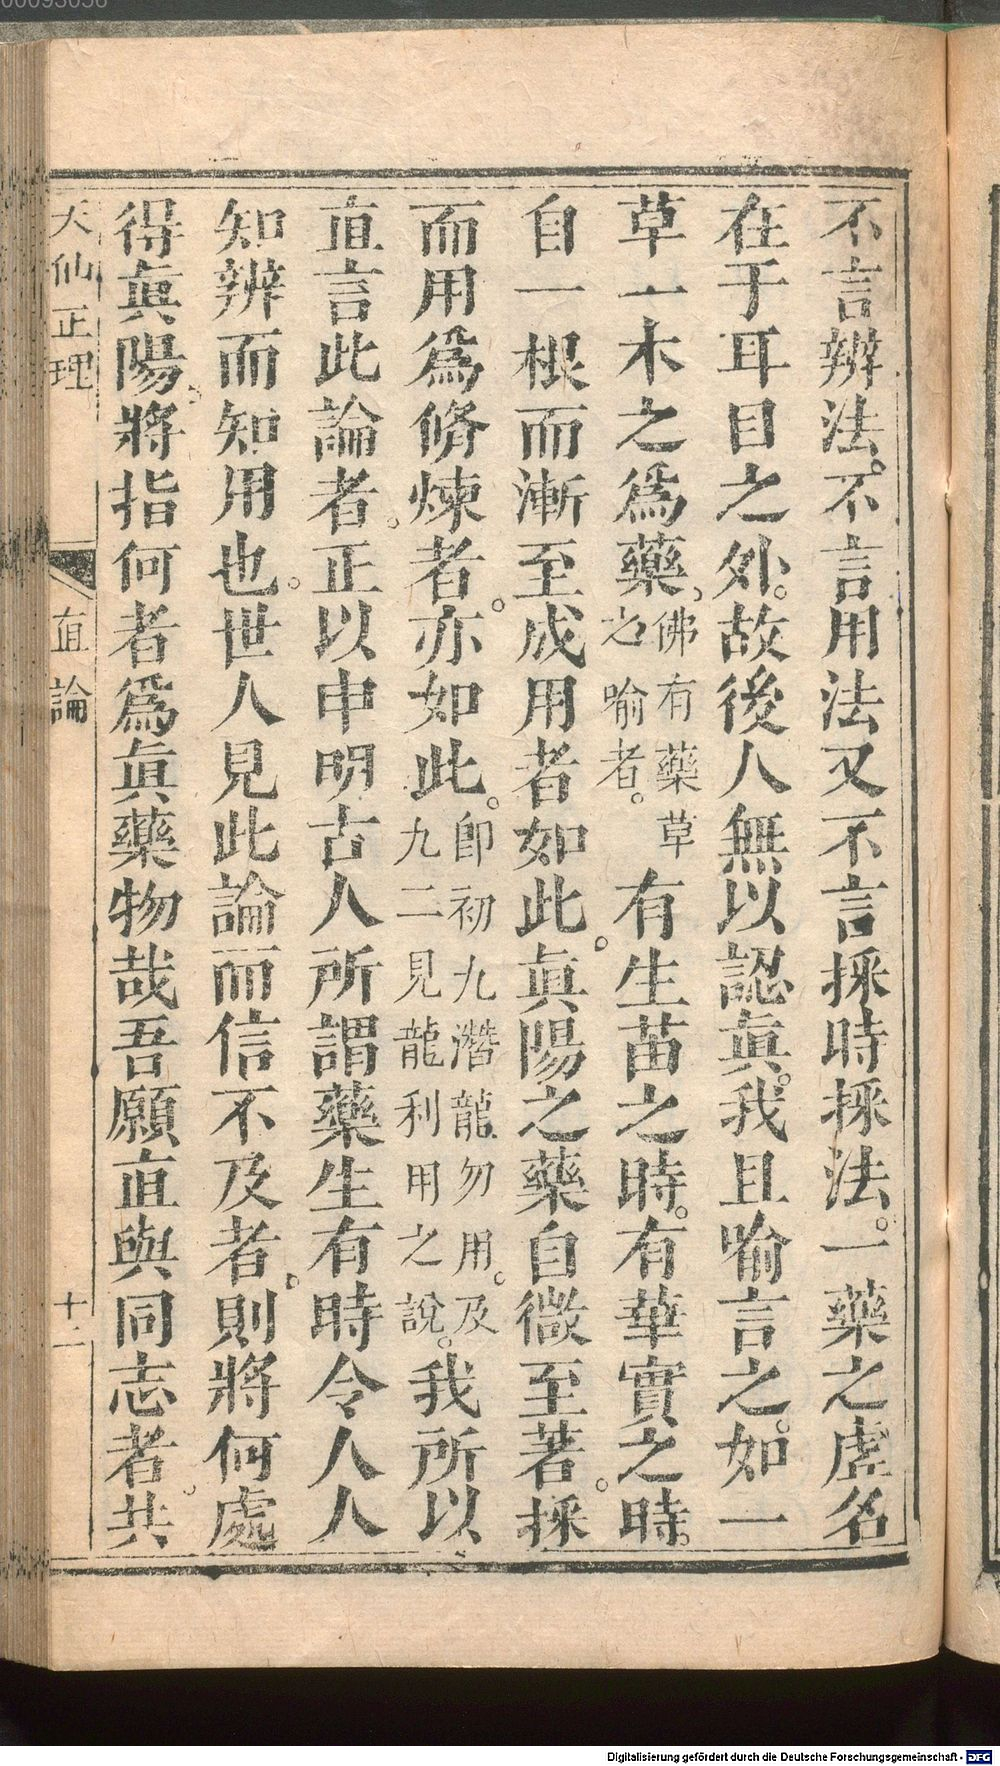 不言辨法。不言用法又不言採時採法。一藥之虛名
在于耳目之外。故後人無以認眞。我且喻言之。如一
草一木之爲藥、佛有藥草之喻者。有生苗之時。有華實之時。
自一根而漸至成用者如此。眞陽之藥自微至著。採
而用爲脩煉者。亦如此。卽初九潛龍勿用。及九二見龍利用之說。我所以
直言此論者。正以申明古人所謂藥生有時令人人
知辨而知用也。世人見此論而信不及者、則將何處
得眞陽、將指何者爲眞藥物哉吾願直與同志者。共
天仙正理 直論 十二
00093056
Digitalisierung gefördert durch die Deutsche Forschungsgemeinschaft - DFG